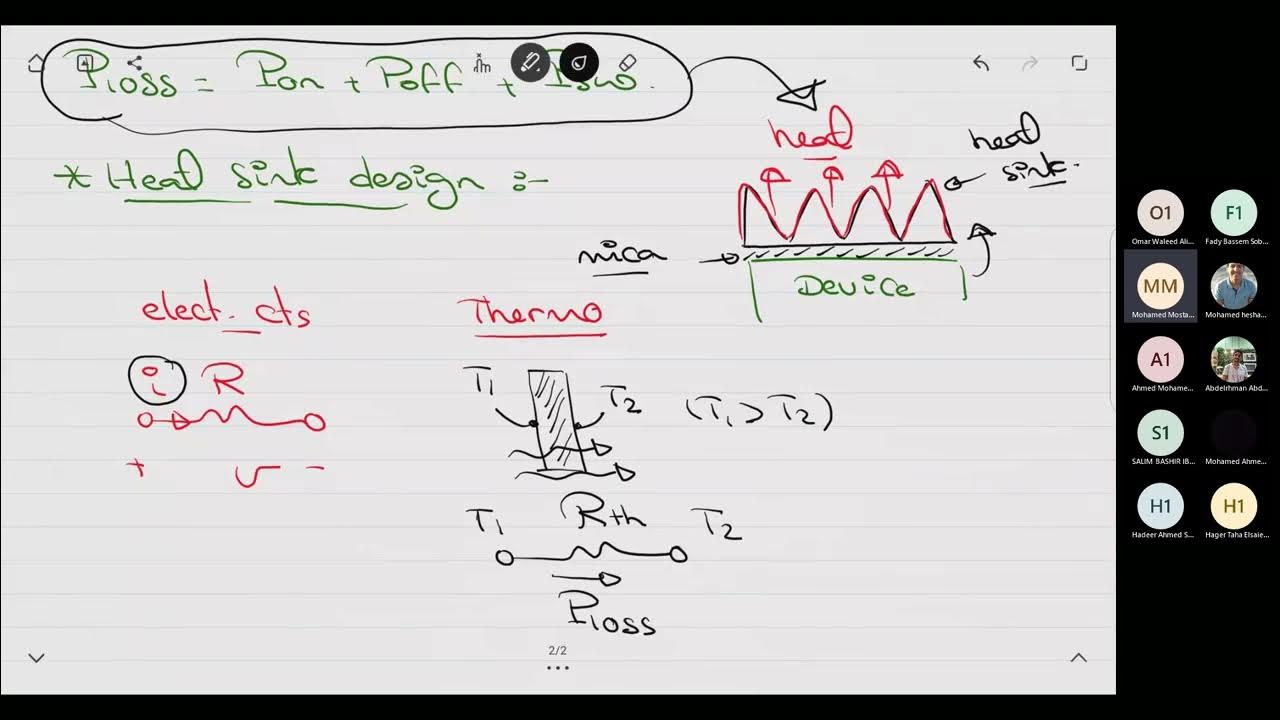 Ploss = Pon + Poff + Psw.
* Heat sink design :-
heat
heat
sink.
mica
Device
elect. cts
Thermo
i R
+ v -
T1 T2 (T1 > T2)
T1 Rth T2
Ploss
2/2
O1
F1
Omar Waleed Ali...
Fady Bassem Sob...
MM
Mohamed Mosta...
Mohamed hesha...
A1
Ahmed Mohame...
Abdelrhman Abd...
S1
SALIM BASHIR IB...
Mohamed Ahme...
H1
H1
Hadeer Ahmed S...
Hager Taha Elsaie...